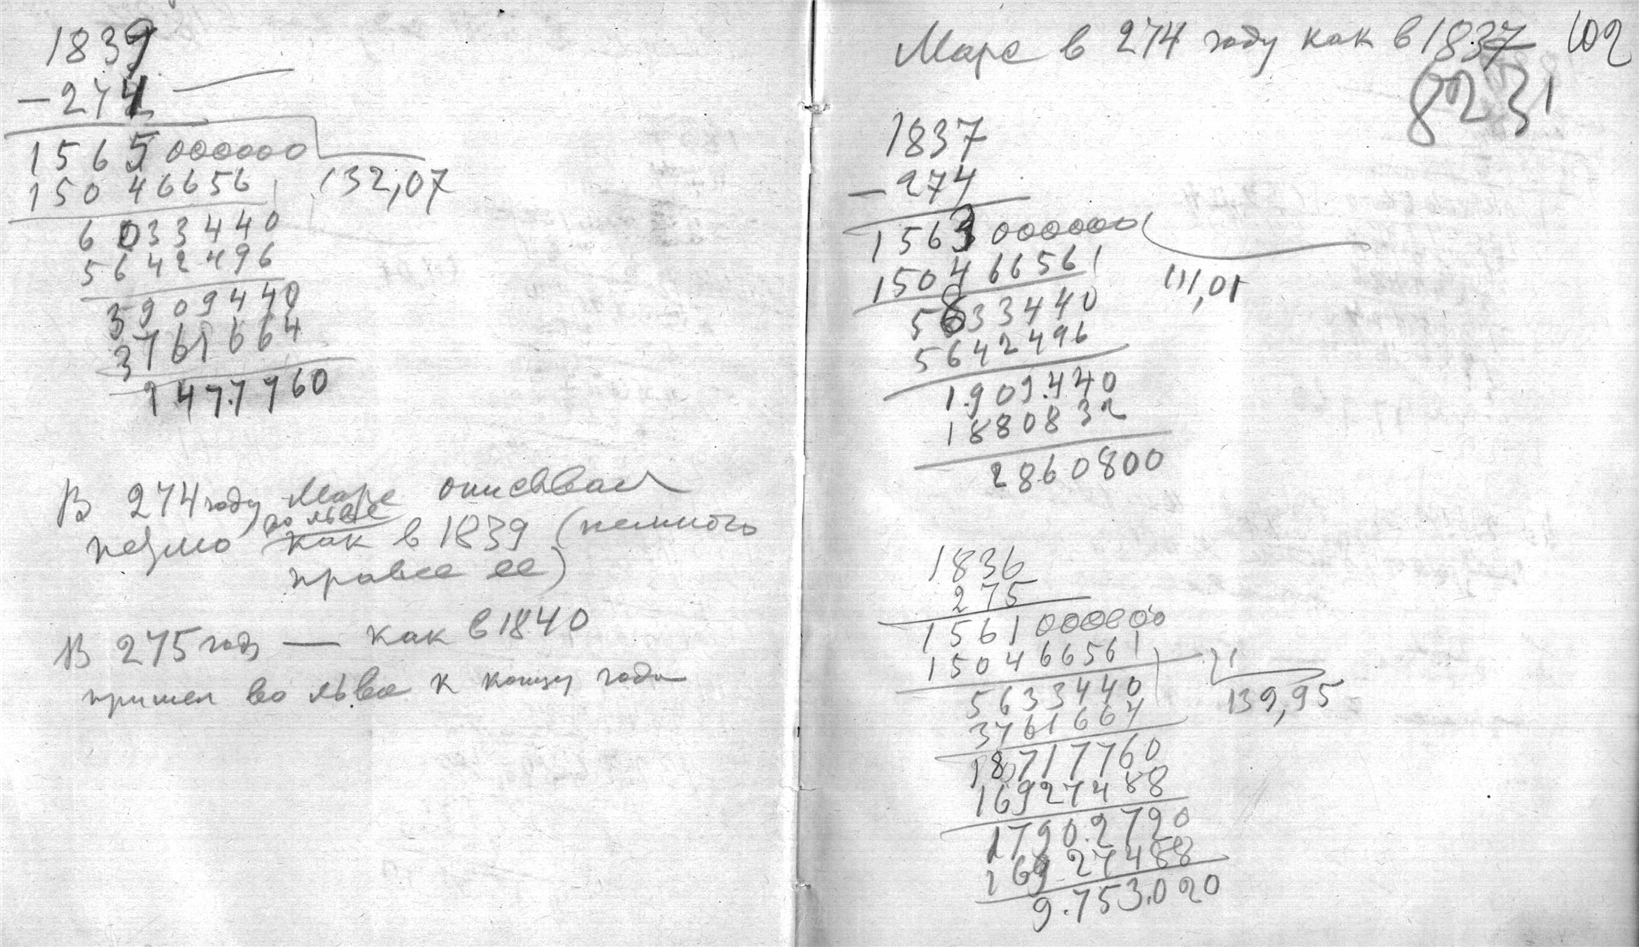 1839
− 274
1565000000
150 466561
132,07
6 033440
5642496
3909440
3761664
1477760
В 274 году Марс описывал
петлю во льве
как в 1839 (немного
правее ее)
В 275 году — как в 1840
пришел во льва к концу года
Марс в 274 году как в 1837 102
8231
1837
− 274
1563000000
1504 66561
111,01
5633440
5642496
1.909.440
1880832
2860800
1836
275
1561000000
150466561
139,95
5633440
3761664
18717760
16927488
1790.2720
169 27488
9.753.020